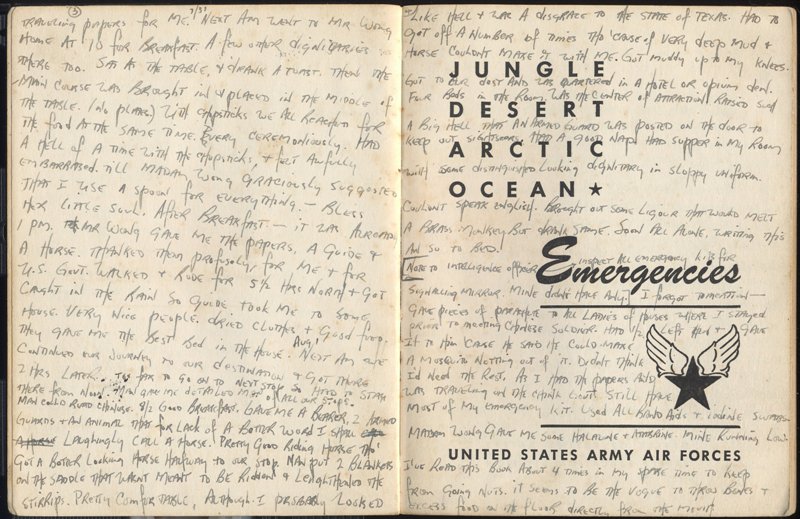 (5)
TRAVELING PAPERS FOR ME. 7/31 NEXT AM WENT TO MR WONG
HOME AT 10 FOR BREAKFAST. A FEW OTHER DIGNITARIES
THERE TOO. SAT AT THE TABLE, & DRANK A TOAST. THEN THE
MAIN COURSE WAS BROUGHT IN & PLACED IN THE MIDDLE OF
THE TABLE. (NO PLATES) WITH CHOPSTICKS WE ALL REACHED FOR
THE FOOD AT THE SAME TIME. VERY CEREMONIOUSLY. HAD
A HELL OF A TIME WITH THE CHOPSTICKS, & FELT AWFULLY
EMBARRASED. TILL MADAM WONG GRACIOUSLY SUGGESTED
THAT I USE A SPOON FOR EVERYTHING. — BLESS
HER LITTLE SOUL. AFTER BREAKFAST — IT WAS AROUND
1 PM. MR WONG GAVE ME THE PAPERS, A GUIDE &
A HORSE. THANKED THEM PROFUSOLY FOR ME & FOR
U.S. GOVT. WALKED & RODE FOR 5 1/2 HRS NORTH & GOT
CAUGHT IN THE RAIN SO GUIDE TOOK ME TO SOME
HOUSE. VERY NICE PEOPLE. DRIED CLOTHES & GOOD FOOD.
THEY GAVE ME THE BEST BED IN THE HOUSE. AUG 1 NEXT AM WE
CONTINUED OUR JOURNEY TO OUR DESTINATION & GOT THERE
2 HRS LATER. TOO FAR TO GO ON TO NEXT STOP SO HAD TO STAY
THERE FROM NOON. MAN GAVE ME DETAILED MAP OF ALL OUR STOPS.
MAN COULD READ CHINESE. 8/2 GOOD BREAKFAST. GAVE ME A BEARER, 2 ARMED
GUARDS & AN ANIMAL THAT FOR LACK OF A BETTER WORD I SHALL
LAUGHINGLY CALL A HORSE. PRETTY GOOD RIDING HORSE THO'
GOT A BETTER LOOKING HORSE HALFWAY TO OUR STOP. MAN PUT 2 BLANKETS
ON THE SADDLE THAT WASNT MEANT TO BE RIDDEN & LENGHTHENED THE
STIRRIPS. PRETTY COMFORTABLE, ALTHOUGH I PROBABLY LOOKED
LIKE HELL & WAS A DISGRACE TO THE STATE OF TEXAS. HAD TO
GET OFF A NUMBER OF TIMES THO 'CAUSE OF VERY DEEP MUD &
HORSE COULDN'T MAKE IT WITH ME. GOT MUDDY UP TO MY KNEES.
JUNGLE
GOT TO OUR DEST AND WAS QUARTERED IN A HOTEL OR OPIUM DEN.
FOUR BEDS IN THE ROOM. WAS THE CENTER OF ATTRACTION. RAISED SUCH
DESERT
A BIG HELL THAT AN ARMED GUARD WAS POSTED ON THE DOOR TO
KEEP OUT SIGHTSEERS. HAD A GOOD NAP & HAD SUPPER IN MY ROOM
ARCTIC
WITH SOME DISTINGUISHED LOOKING DIGNITARY IN SLOPPY UNIFORM.
OCEAN★
COULDNT SPEAK ENGLISH. BROUGHT OUT SOME LIQOUR THAT WOULD MELT
A BRASS MONKEY BUT DRANK SAME. SOON ALL ALONE, WRITING THIS
AN SO TO BED!
Emergencies
NOTE TO INTELLIGENCE OFFICER — INSPECT ALL EMERGENCY KITS FOR
SIGNALLING MIRROR. MINE DIDN'T HAVE ANY. I FORGOT TO MENTION —
GAVE PIECES OF PARACHUTE TO ALL LADIES OF HOUSES WHERE I STAYED
PRIOR TO MEETING CHINESE SOLDIER. HAD 1/2 LEFT & GAVE
IT TO HIM 'CAUSE HE SAID HE COULD MAKE
A MOSQUITO NETTING OUT OF IT. DIDN'T THINK
I'D NEED THE REST, AS I HAD THE PAPERS AND
WAS TRAVELING ON THE CHINK GOVT. STILL HAVE
MOST OF MY EMERGENCY KIT. USED ALL BAND AIDS & IODINE SWABS.
MADAM WONG GAVE ME SOME HALAZONE & ATABRINE. MINE RUNNING LOW.
UNITED STATES ARMY AIR FORCES
I'VE READ THIS BOOK ABOUT 4 TIMES IN MY SPARE TIME TO KEEP
FROM GOING NUTS. IT SEEMS TO BE THE VOGUE TO THROW BONES &
EXCESS FOOD ON THE FLOOR DIRECTLY FROM THE MOUTH